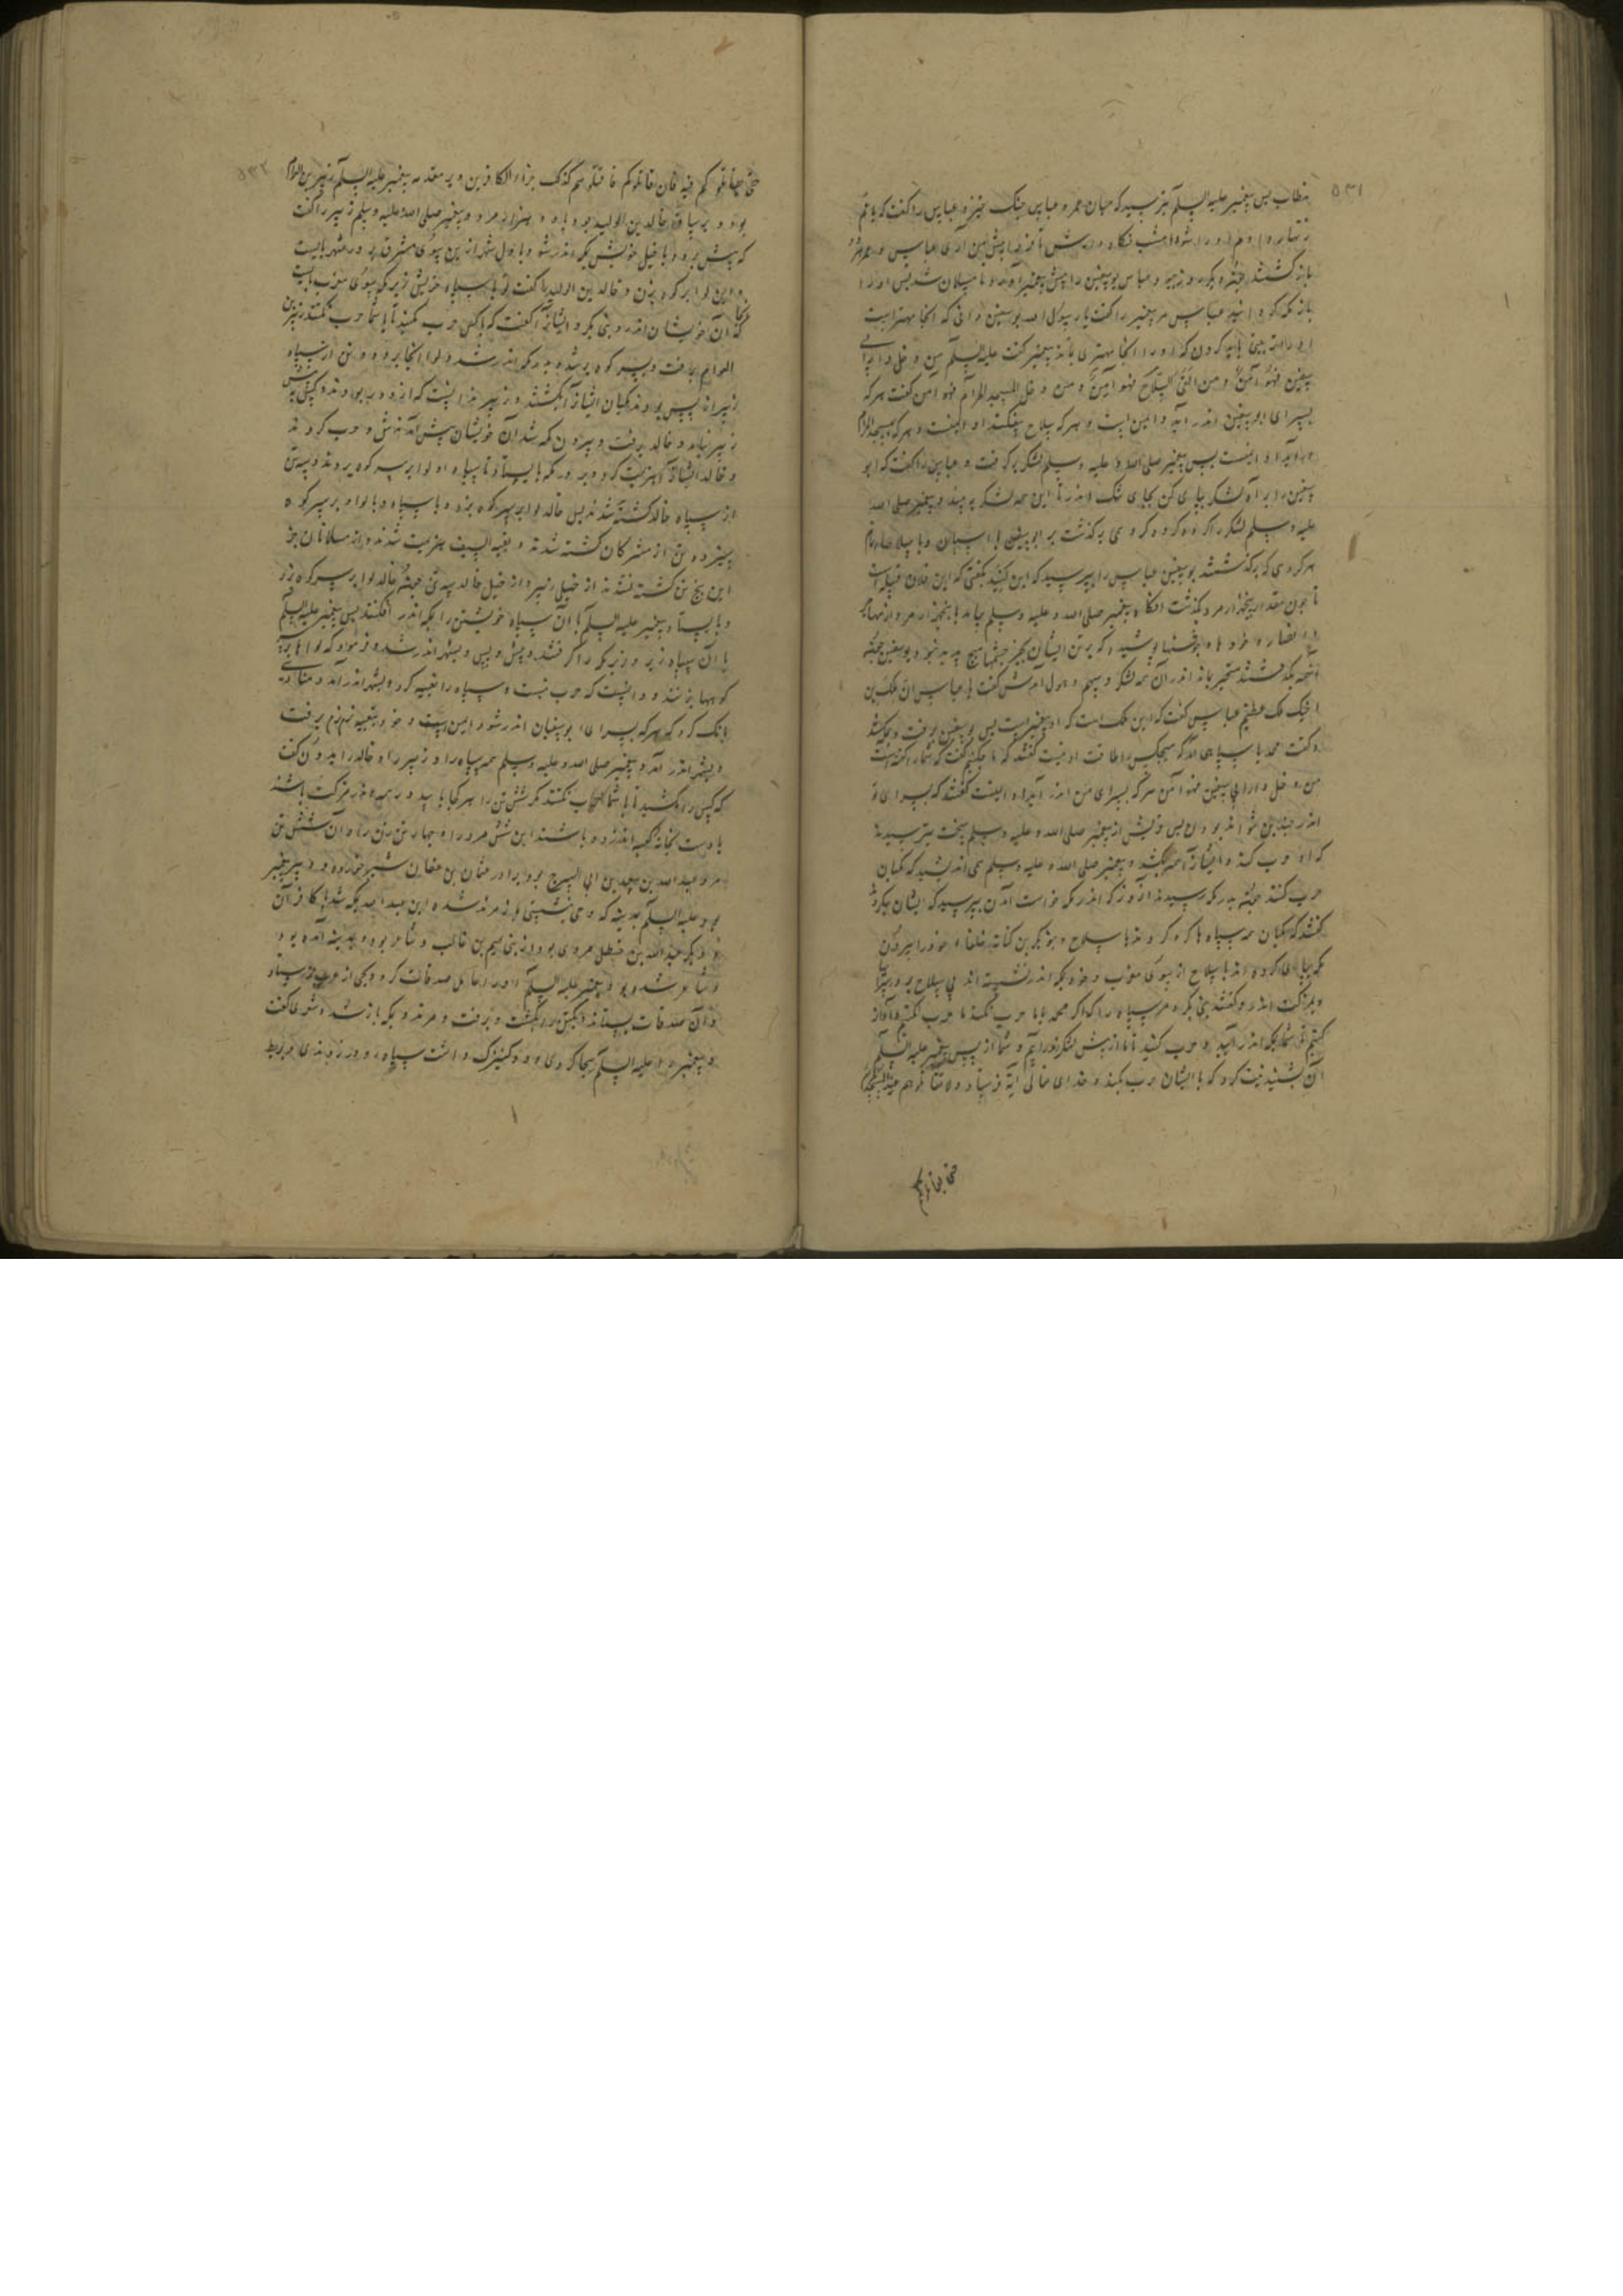 ۵۳۱
خطاب پس پیغمبر علیه السلام بترسید که میان عمر و عباس جنگ خیزد و عباس را گفت که یا عم
زنهار دادم او را شو امشب نگاه دارش تا فردا پیش من آری عباس و عمر هر دو
باز گشتند چون دیگر روز عباس بوسفین را پیش پیغمبر آورد و مسلمان شد پس او را
باز مکه عباس مر پیغمبر را گفت یا رسول الله بوسفین دانی که آنجا مهتر است
او را باید کردن که او را آنجا مهتری باشد پیغمبر گفت علیه السلام من دخل دار ابی
سفین فهو آمن و من القی السلاح فهو آمن و من دخل المسجد الحرام فهو آمن گفت هر که
بسرای ابوسفین اندر آید او ایمن است و هر که سلاح بیفکند او ایمنست و هر که بمسجد الحرام
در آید او ایمنست پس پیغمبر صلی الله علیه وسلم لشکر برگرفت و عباس را گفت که ابو
سفین را بر راه لشکر بپای کن بجای تنک اندر تا این همه لشکر به بیند و پیغمبر صلی الله
علیه وسلم لشکر را کروه کروه کروهی برگذشت بر ابوسفین با اسپان و با سلاحها تمام
هر کروهی که برگذشتند بوسفین عباس را بپرسید که این کیند بگفتی که این فلان قبیله است
تا چون مقدار پنجهزار مرد بگذشت آنگاه پیغمبر صلی الله علیه وسلم بیامد با پنجهزار مرد از مهاجر
و انصار و خودها و جوشنها پوشیده که بر تن ایشان بجز چشمها هیچ پدید نبود و بوسفین چون
آن همه بگذشتند متحیر بماند اندر آن همه لشکر و سهم و هول آمدش گفت یا عباس ان ملک بن
اخیک ملک عظیم عباس گفت که این ملک است که او پیغمبر است پس بوسفین برفت و بمکه شد
و گفت محمد با سپاهی آمد که هیچکس را طاقت او نیست گفتند که ما چکنیم گفت که شما را گفته است
من دخل دار ابی سفین فهو آمن هر که بسرای من اندر آید او ایمنست گفتند که بسرای تو
اندر چندین بتواند بودن پس قریش از پیغمبر صلی الله علیه وسلم سخت بترسیدند
که او حرب کند و ایشان را همه بکشد و پیغمبر صلی الله علیه وسلم می اندیشید که مکیان
حرب کنند چون بدر مکه رسید آن روز که اندر مکه خواست آمدن بپرسید که ایشان چکردند
گفتند که مکیان همه سپاه ها گرد کردند با سلاح و بنو بکر بن کنانه خلفاء خود را بیرون
مکه بپای کرده اند با سلاح از سوی مغرب و خود بمکه اندر نشسته اند بی سلاح بر در سرا
و بمزکت اندر و گفتند بنی بکر و مر سپاه را که اگر محمد با ما حرب نکند ما حرب نکنیم و آواز
کنیم شما بمکه اندر آیید و حرب کنید تا ما از پیش لشکر اندر آییم و شما از پس پیغمبر علیه السلام
آن بشنید نیت کرد که با ایشان حرب کند و خدای تعالی آیة فرستاد و لا تقاتلوهم عند المسجد الحرام
حتی یقاتلوکم
۵۳۲
حتی یقاتلوکم فیه فان قاتلوکم فاقتلوهم کذلک جزاء الکافرین و بر مقدمه پیغمبر علیه السلام زبیر بن العوام
بود و بر ساقه خالد بن الولید بود با دو هزار مرد و پیغمبر صلی الله علیه وسلم زبیر را گفت
که پیش رو و با خیل خویش بمکه اندر شو و باول شهر ازین سوی مشرق بر در شهر بایست
و این لوا بر کوه بزن و خالد بن الولید را گفت تو با سپاه خویش زیر مکه بسوی مغرب بایست
که آن خویشان اندر و بنی بکر و ایشان را گفت که با کس حرب مکنید تا با شما حرب نکنند زبیر بن
العوام برفت و بسر کوه بر شد و بدر مکه اندر شد و لوا آنجا بزد و دو تن از سپاه
زبیر از پس بودند مکیان ایشان را بکشتند و زبیر ندانست که از دور بودند و کس پیش
زبیر نیامد و خالد برفت و بیرون مکه شد آن خویشان پیش آمدندش و حرب کردند
و خالد ایشان را هزیمت کرد و بدر مکه بایستاد تا سپاه او لوا بر سر کوه بردند و سه تن
از سپاه خالد کشته شدند پس خالد لوا بر سر کوه بزد و با سپاه و با لوا بر سر کوه
سیزده تن از مشرکان کشته شدند و بقیة السیف هزیمت شدند و از مسلمانان جز
این پنج تن کشته نشدند از خیل زبیر و از خیل خالد سه تن چون خالد لوا بر سر کوه زد
و بایستاد پیغمبر علیه السلام با آن سپاه خویشتن را بمکه اندر افکند پس پیغمبر علیه السلام
با آن سپاه زبر و زیر مکه را گرفتند و پیش و پس و بشهر اندر شد و فرمود که لوا ها بر سر
کوهها بزنند و دانست که حرب نیست و سپاه را تعبیه کرد و بشهر اندر آمد و منادی
بانک کرد که هر که بسرای ابوسفیان اندر شود ایمن است و خود بتعبیه نرم نرم برفت
و بشهر اندر آمد و پیغمبر صلی الله علیه وسلم همه سپاه را و زبیر را و خالد را بیرون گفت
که کس را مکشید تا با شما حرب نکنند مگر شش تن را هر کجا یابید و ر همه اندر مزکت باشند
یا دست بخانه کعبه اندر زده باشند این شش مرد را و چهار تن زن را و آن شش تن
مرد عبد الله بن سعد بن ابی السرح بود برادر عثمان بن عفان شیر خورده و دبیر پیغمبر
بود علیه السلام بمدینه که وحی نبشتی باز مرتد شده این عبد الله بمکه شد با کافران
و دیگر عبد الله بن خطل مردی بود از بنی تیم بن غالب و شاعر بود و بمدینه آمده بود
و مسلمان شده بود و پیغمبر علیه السلام او را عامل صدقات کرد و بحی از عرب فرستاد
و آن صدقات بستاند و بکشت و برفت و مرتد و بمکه باز شد و شعر گفت
و پیغمبر را علیه السلام هجا کردی و دو کنیزک داشت سپاه رود زدندی و بربط